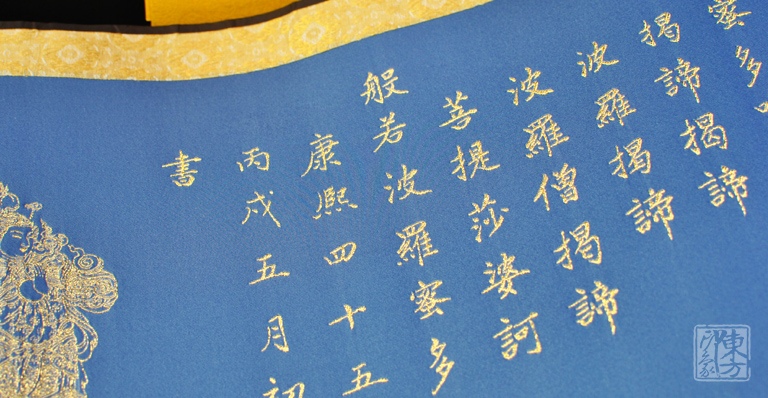 蜜多
揭諦揭諦
波羅揭諦
波羅僧揭諦
菩提莎婆訶
般若波羅蜜多
康熙四十五
丙戌五月初
書
東方